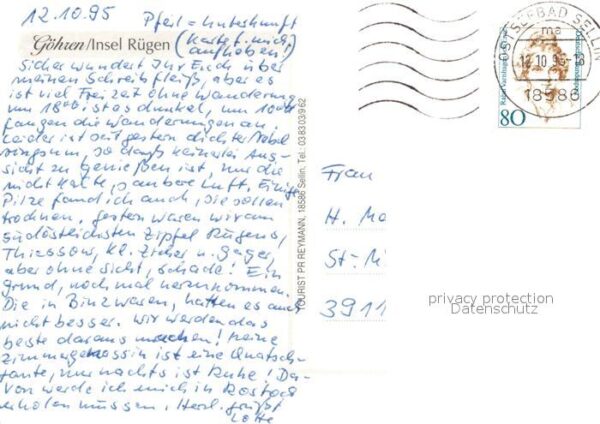 12.10.95 Pfeil = Unterkunft
Göhren/Insel Rügen (Karte f. mich aufheben!)
Sicher wundert Ihr Euch über
meinen Schreibfleiß, aber es
ist viel Freizeit ohne Wanderung
um 18⁰⁰ ist es dunkel, um 10⁰⁰
fangen die Wanderungen an.
Leider ist seit gestern dichter Nebel
ringsum, so daß keinerlei Aus-
sicht zu genießen ist, nur die
nicht kalte, saubere Luft. Einige
Pilze fand ich auch, sie sollen
trocknen, gestern waren wir am
südöstlichsten Zipfel Rügens,
Thiessow, Kl. Zicker u. Gager,
aber ohne Sicht, schade! Ein
Grund, noch mal herzukommen.
Die in Binz waren, hatten es auch
nicht besser. Wir werden das
beste daraus machen! Meine
Zimmergenossin ist eine Quatsch-
tante, nur nachts ist Ruhe! Da-
von werde ich mich in Rostock
erholen müssen. Herzl. grüßt
Lotte
TOURIST PR REYMANN, 18586 Sellin, Tel.: 038303/962
OSTSEEBAD SELLIN
ma
12.10.95-18
18586
80
Frau
H. Ma
St.-Mi
3911
privacy protection
Datenschutz